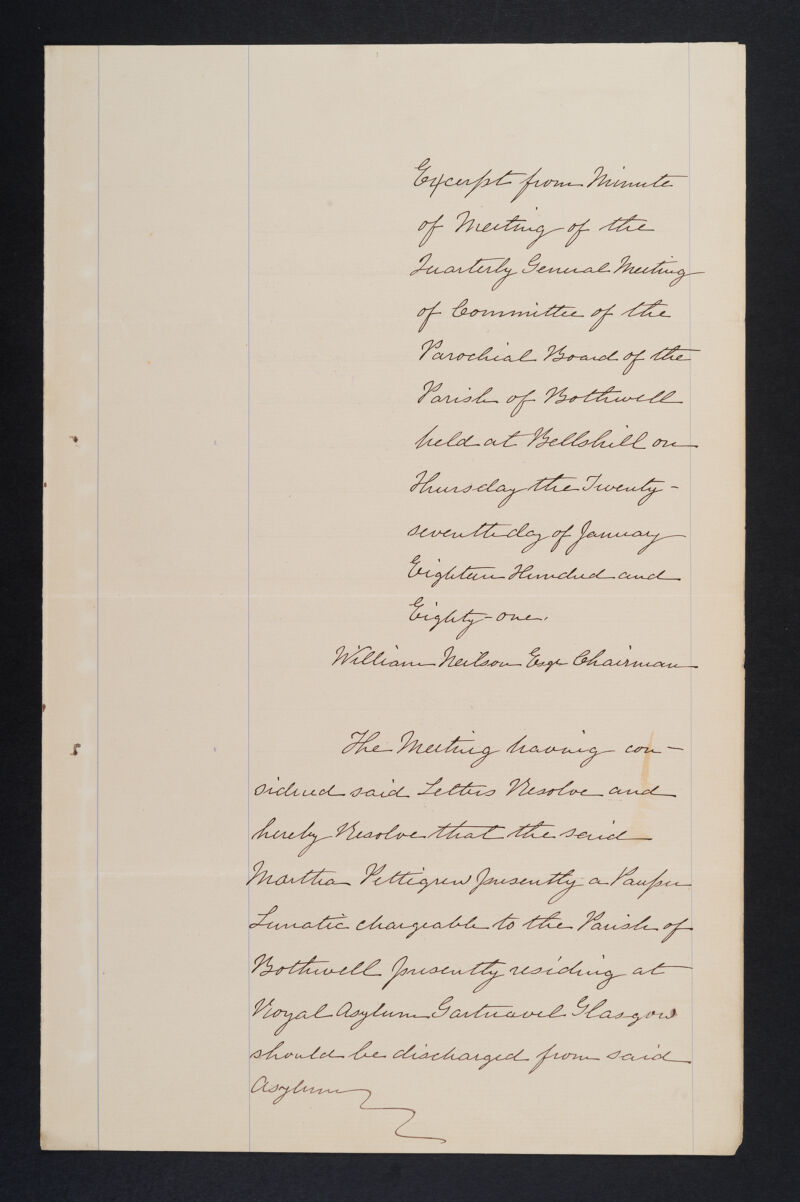 Excerpt from Minute
of Meeting of the
Quarterly General Meeting
of Committee of the
Parochial Board of the
Parish of Bothwell
held at Bellshill on
Thursday the Twenty-
seventh day of January
Eighteen Hundred and
Eighty-one.
William Neilson Esqr Chairman
The Meeting having con-
sidered said Letters Resolve and
hereby Resolve that the said
Martha Pettigrew presently a Pauper
Lunatic chargeable to the Parish of
Bothwell presently residing at
Royal Asylum Gartnavel Glasgow
should be discharged from said
Asylum